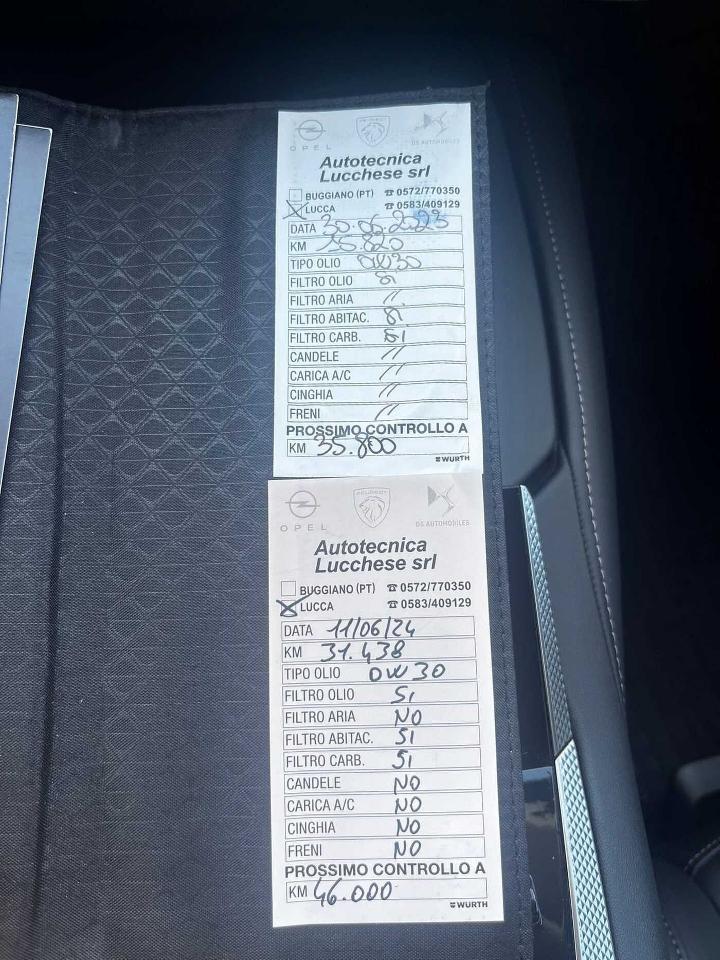 OPEL PEUGEOT DS AUTOMOBILES
Autotecnica
Lucchese srl
BUGGIANO (PT) ☎ 0572/770350
X LUCCA ☎ 0583/409129
DATA 30.06.2023
KM 15.820
TIPO OLIO 0W30
FILTRO OLIO SI
FILTRO ARIA //
FILTRO ABITAC. SI
FILTRO CARB. SI
CANDELE //
CARICA A/C //
CINGHIA //
FRENI //
PROSSIMO CONTROLLO A
KM 35.800
WÜRTH
OPEL PEUGEOT DS AUTOMOBILES
Autotecnica
Lucchese srl
BUGGIANO (PT) ☎ 0572/770350
X LUCCA ☎ 0583/409129
DATA 11/06/24
KM 31.438
TIPO OLIO 0W30
FILTRO OLIO SI
FILTRO ARIA NO
FILTRO ABITAC. SI
FILTRO CARB. SI
CANDELE NO
CARICA A/C NO
CINGHIA NO
FRENI NO
PROSSIMO CONTROLLO A
KM 46.000
WÜRTH